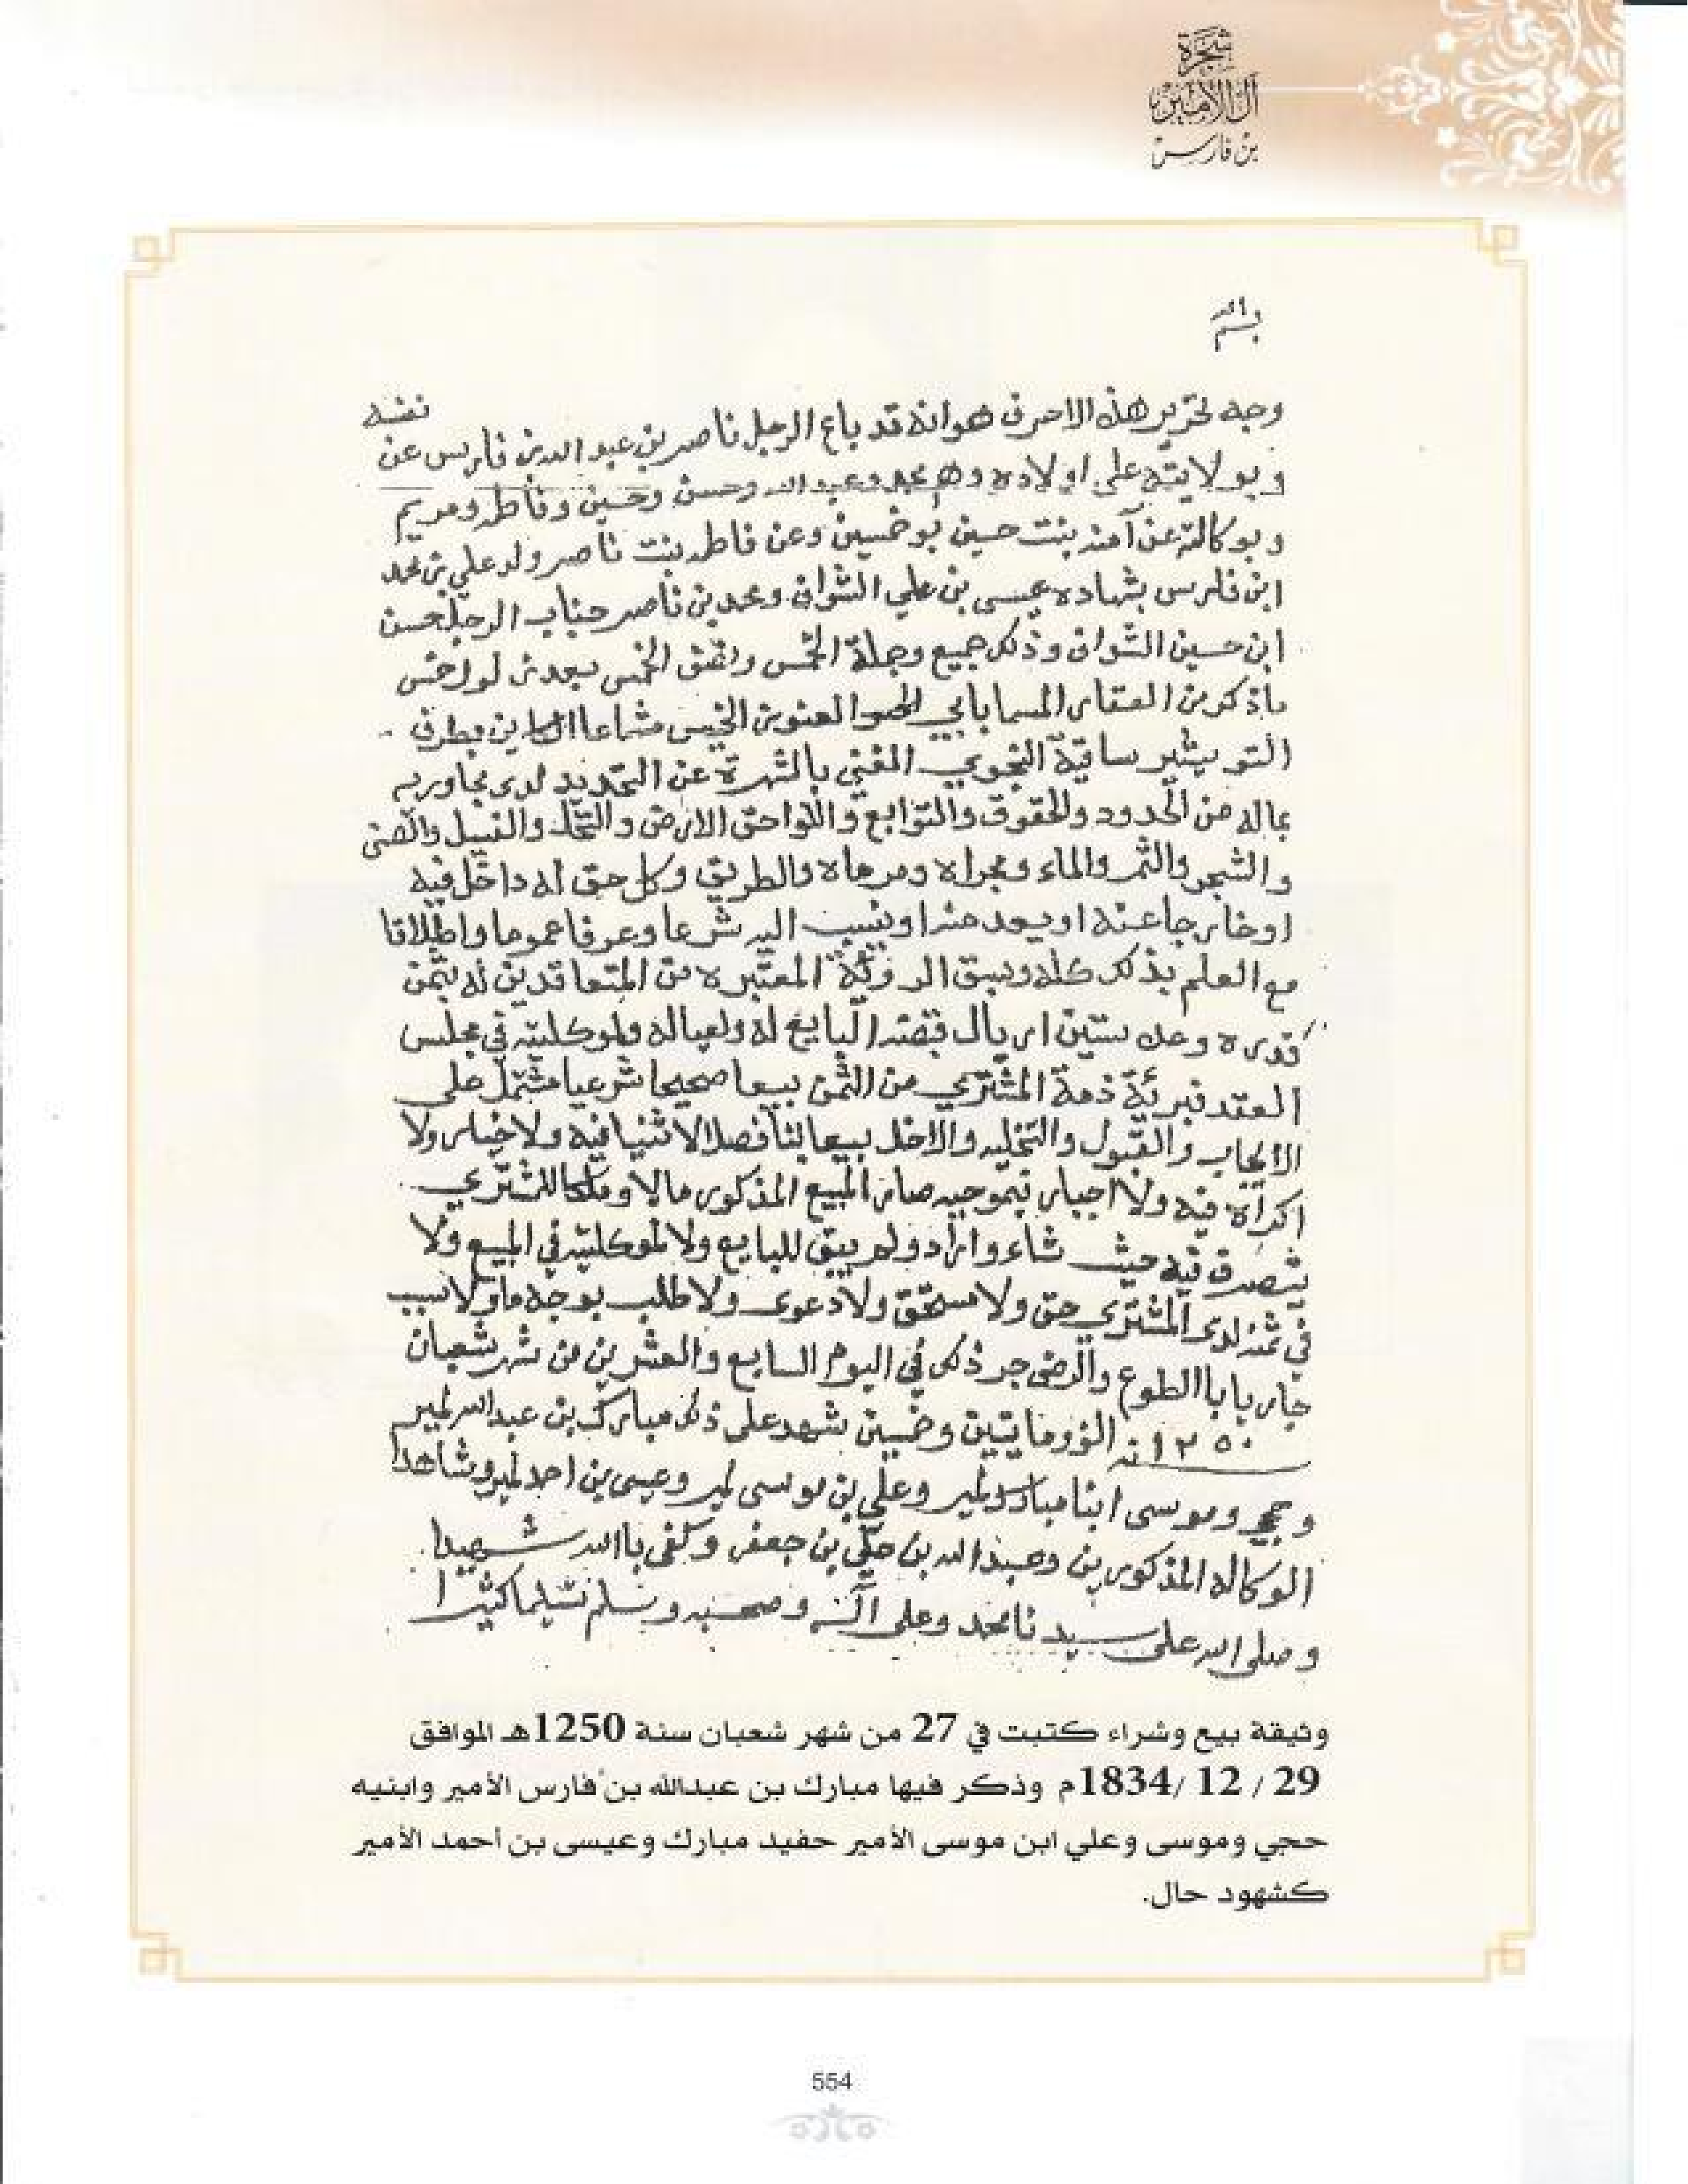 شجرة
آل الأمير
بن فارس
بسم الله
وجه تحرير هذه الاحرف هو انه قد باع الرجل ناصر بن عبد الله بن فارس عن نفسه
وبولايته على اولاده وهم محمد وعبد الله وحسن وحسين وفاطمه ومريم
وبوكالته عن آمنه بنت حسين بو خمسين وعن فاطمه بنت ناصر ولد علي بن محمد
ابن فارس بشهاده عيسى بن علي الشواف ومحمد بن ناصر جناب الرجل حسن
ابن حسين الشواف وذلك جميع وجملة الخمس
ما ذكر من العقار المسما بابي مشاعا بطرف
ساقية المغني بالشهرة عن التحديد لدى مجاوريه
بماله من الحدود والحقوق والتوابع واللواحق الارض والنخل والفسيل
والشجر والثمر والماء ومجراه ومرماه والطريق وكل حق له داخل فيه
او خارجا عنه او يعد منه او ينسب اليه شرعا وعرفا عموما واطلاقا
مع العلم بذلك كله وسبق الروئة المعتبره من المتعاقدين له بثمن
قدره وعده ستين اريال قبضه البايع له ولعياله ولموكليته في مجلس
العقد فبرئة ذمة المشتري من الثمن بيعا صحيحا شرعيا مشتمل على
الايجاب والقبول والتخليه والاخذ بيعا بتا فصلا لا ثنيا فيه ولا خيار ولا
اكراه فيه ولا اجبار فبموجبه صار المبيع المذكور مالا وملكا للمشتري
يتصرف فيه حيث شاء واراد ولم يبق للبايع ولا لموكليته في المبيع ولا
في ثمنه لدى المشتري حق ولا مستحق ولا دعوى ولا طلب بوجه ما ولا سبب
جاريا باالطوع والرضى جر ذلك في اليوم السابع والعشرين من شهر شعبان
سنه ١٢٥٠ الف ومايتين وخمسين شهد على ذلك مبارك بن عبد الله لمير
وحجي وموسى ابنا مبارك لمير وعلي بن موسى لمير وعيسى بن احمد لمير وشاهدا
الوكاله المذكورين وعبد الله بن علي بن جعفر وكفى باالله شهيدا
وصلى الله على سيدنا محمد وعلى آله وصحبه وسلم تسليما كثيرا
وثيقة بيع وشراء كتبت في 27 من شهر شعبان سنة 1250هـ الموافق
29 / 12 /1834م وذكر فيها مبارك بن عبدالله بن فارس الأمير وابنيه
حجي وموسى وعلي ابن موسى الأمير حفيد مبارك وعيسى بن أحمد الأمير
كشهود حال.
554